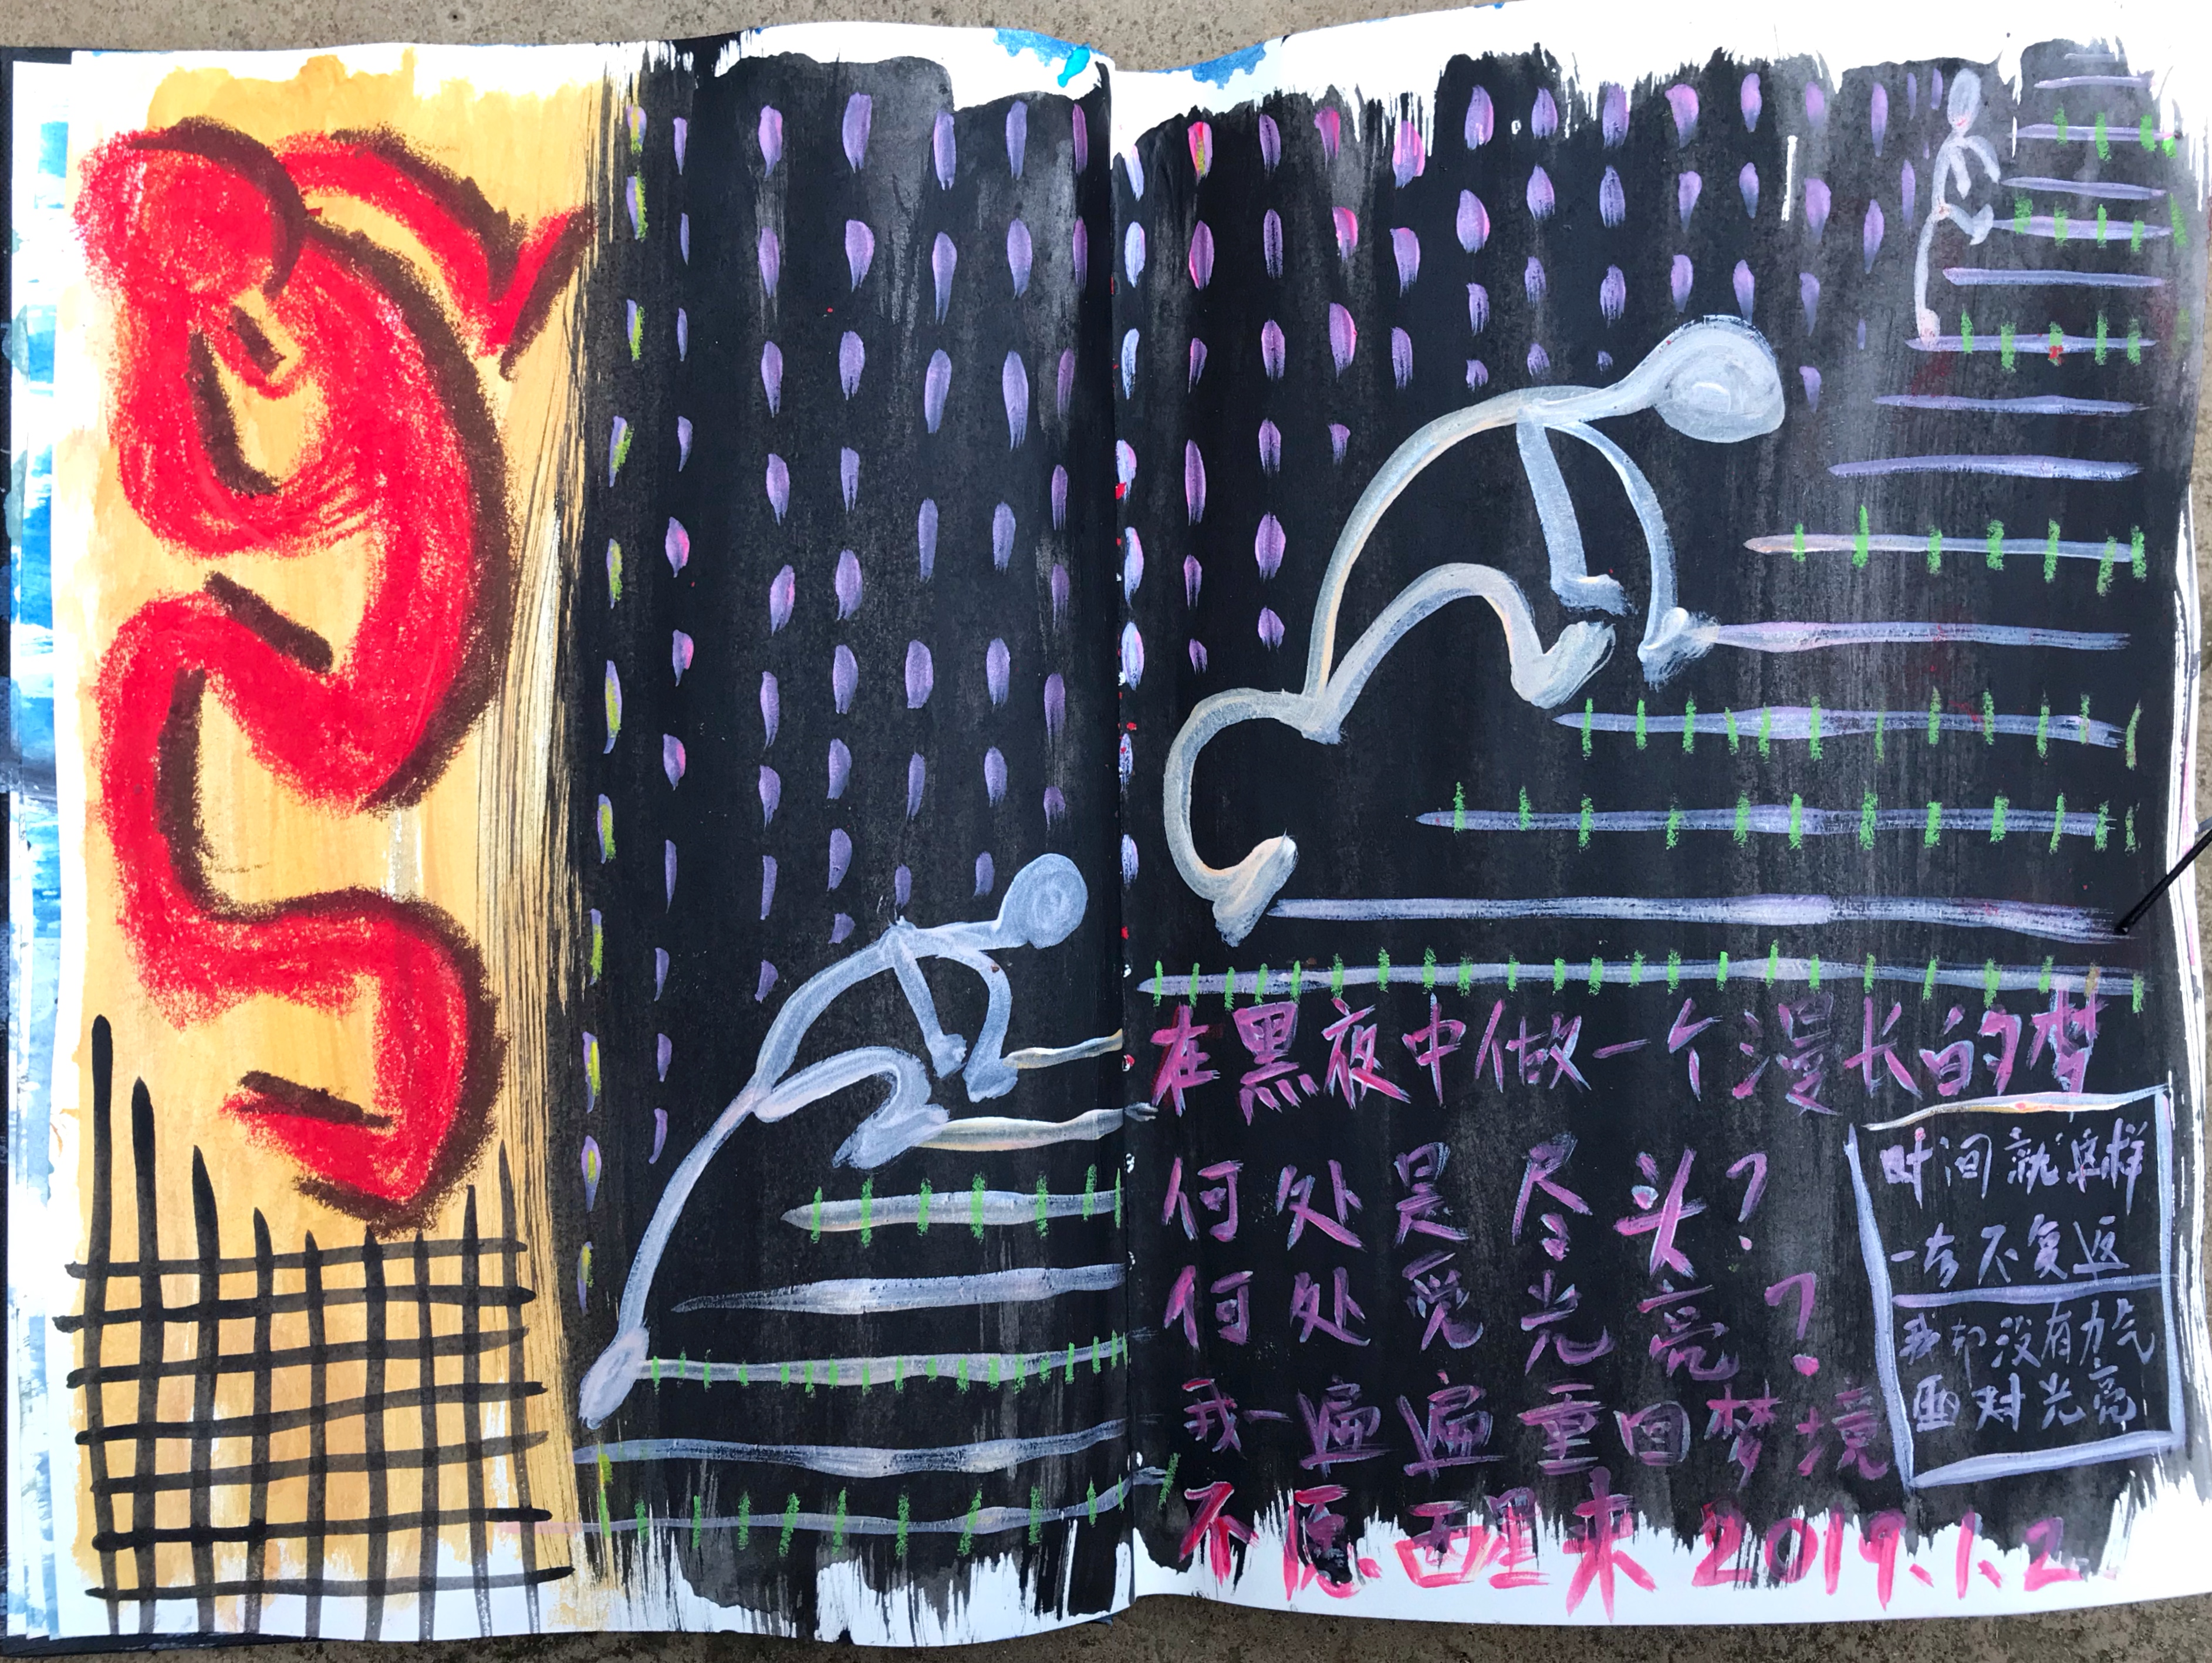 在黑夜中做一个漫长的梦
何处是尽头？
何处觅光亮？
我一遍遍重回梦境
不愿醒来 2019.1.2.
时间就这样
一去不复返
我却没有力气
面对光亮